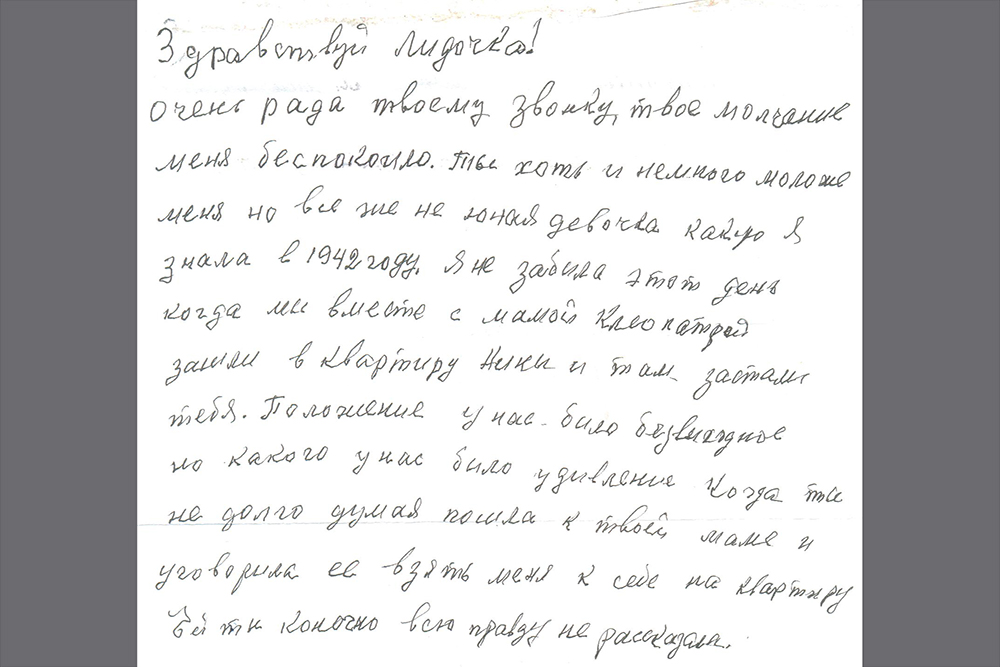 Здравствуй Лидочка!
очень рада твоему звонку, твое молчание
меня беспокоило. Ты хоть и немного моложе
меня но все же не юная девочка какую я
знала в 1942 году. Я не забыла этот день
когда мы вместе с мамой Клеопатрой
зашли в квартиру Нины и там застали
тебя. Положение у нас было безвыходное
но какого у нас было удивление когда ты
не долго думая пошла к твоей маме и
уговорила ее взять меня к себе на квартиру
Ей ты конечно всю правду не рассказала.